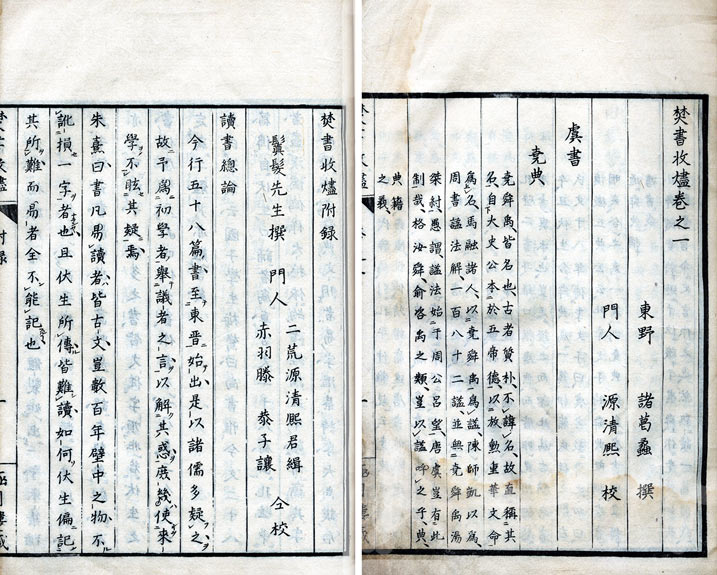 焚書收燼卷之一
東野 諸葛蠡 撰
門人 源清熙 校
虞書
堯典
堯舜禹皆名也古者質朴不諱名故直稱其
名自大史公本於五帝德以放勲重華文命
爲名馬融諸人以堯舜禹爲謚陳師凱以爲
周書謚法解一百八十二謚並無堯舜禹湯
桀紂愚謂謚法始于周公呂望唐虞豈有此
制哉格汝舜俞咨禹之類豈以謚呼之乎典
典籍之義
焚書收燼附録
鬒髮先生撰 門人 二荒源清熙君緝
赤羽滕 恭子讓 仝校
讀書總論
今行五十八篇書至東晋始出是以諸儒多疑之
故予爲初學者舉議者之言以解其惑庻幾使來
學不眩其疑焉
朱熹曰書凡易讀者皆古文豈數百年壁中之物不
訛損一字者也且伏生所傳皆難讀如何伏生偏記
其所難而易者全不能記也